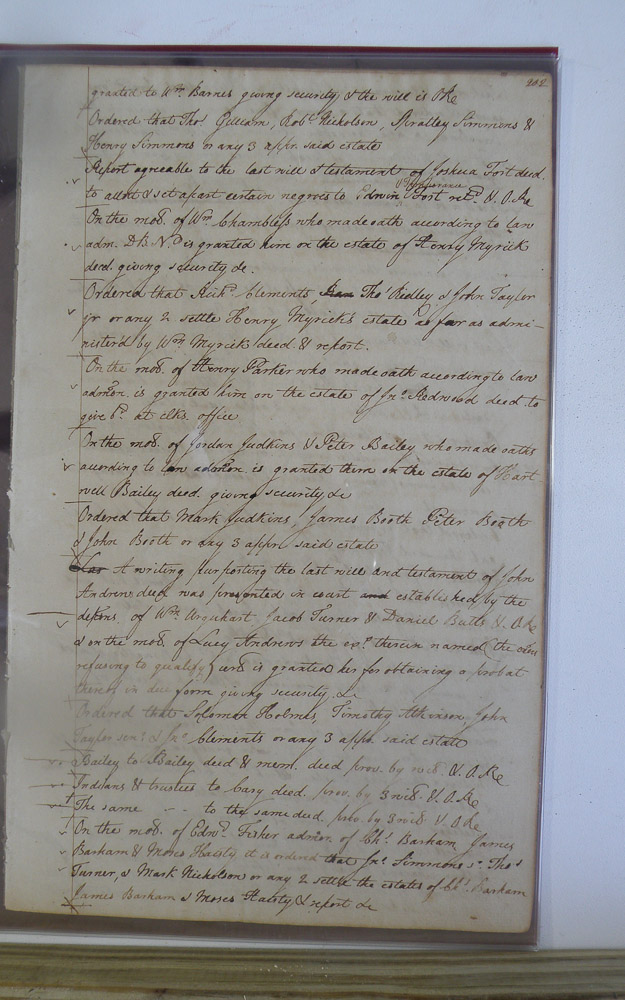 202
granted to Wm. Barnes giving security & the will is O Re
Ordered that Thos. Gilliam, Robt. Nicholson, Spratley Simmons &
Henry Simmons or any 3 appr. said estate
Report agreeable to the last will & testament of Joshua Fort deed.
& Temperance
to allott & set apart certain negroes to Edwin Fort retd. & O. Re
On the mo8. of Wm Chambless who made oath according to law
adm. D.B.N. is granted him on the estate of Henry Myrick
deed. giving security &c.
Ordered that Richd. Clements, Thos. Ridley & John Taylor
jr or any 2 settle Henry Myrick's estate as far as admi-
nisterd by Wm Myrick deed & report.
On the mo8. of Henry Parker who made oath according to law
admon. is granted him on the estate of Jno. Redwood deed. to
give bd. at clks. office
On the mo8. of Jordan Judkins & Peter Bailey who made oaths
according to law admon. is granted them on the estate of Hart
well Bailey deed. giving security &c
Ordered that Mark Judkins, James Booth Peter Booth
& John Booth or any 3 appr. said estate
A writing purporting the last will and testament of John
Andrews deed was presented in court and established by the
depons. of Wm. Urquhart Jacob Turner & Daniel Butts & O Re
& on the mo8. of Lucy Andrews the exx. therein named (the
refusing to qualify) cert. is granted her for obtaining a probat
thereof in due form giving security &c
Ordered that Solomon Holmes, Timothy Atkinson, John
Taylor senr. & Clements or any 3 appr. said estate
Bailey to Bailey deed & mem. deed prov. by wits. & O. Re
Indians & trustees to Cary deed prov. by 3 wits. & O. Re
The same - - to the same deed. prov. by 3 wits. & O Re
On the mo8. of Edwd. Fisher admor. of Chs. Barham James
Barham & Moses Haisty it is ordered that Jno. Simmons sr. Thos
Turner, & Mark Nicholson or any 2 settle the estates of Chs. Barham
James Barham & Moses Haisty & report &c